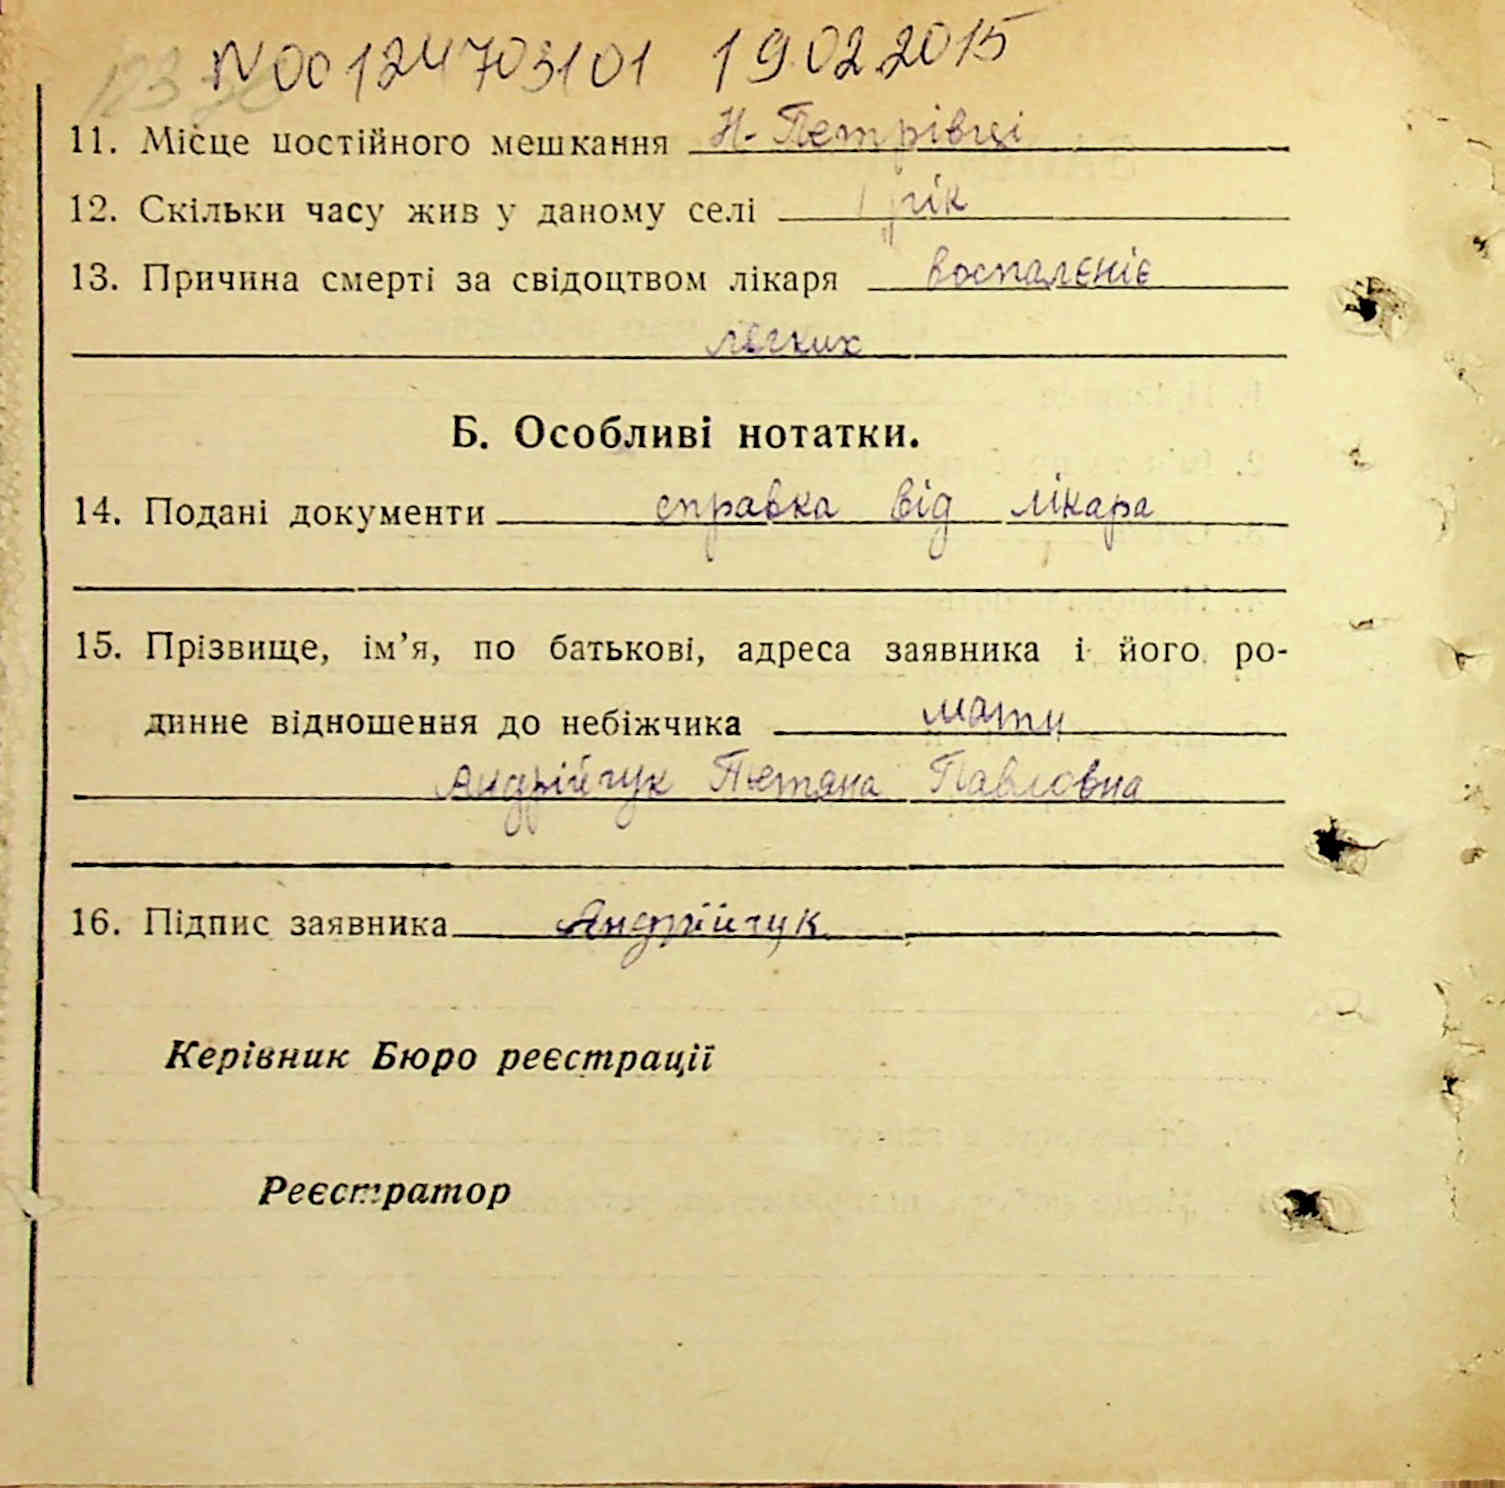 N00124703101 19.02.2015
11. Місце постійного мешкання Н-Петрівці
12. Скільки часу жив у даному селі 1 рік
13. Причина смерті за свідоцтвом лікаря воспалєніє
легких
Б. Особливі нотатки.
14. Подані документи справка від лікара
15. Прізвище, ім’я, по батькові, адреса заявника і його ро-
динне відношення до небіжчика мати
Андрійчук Тетяна Павловна
16. Підпис заявника Андрійчук
Керівник Бюро реєстрації
Реєстратор